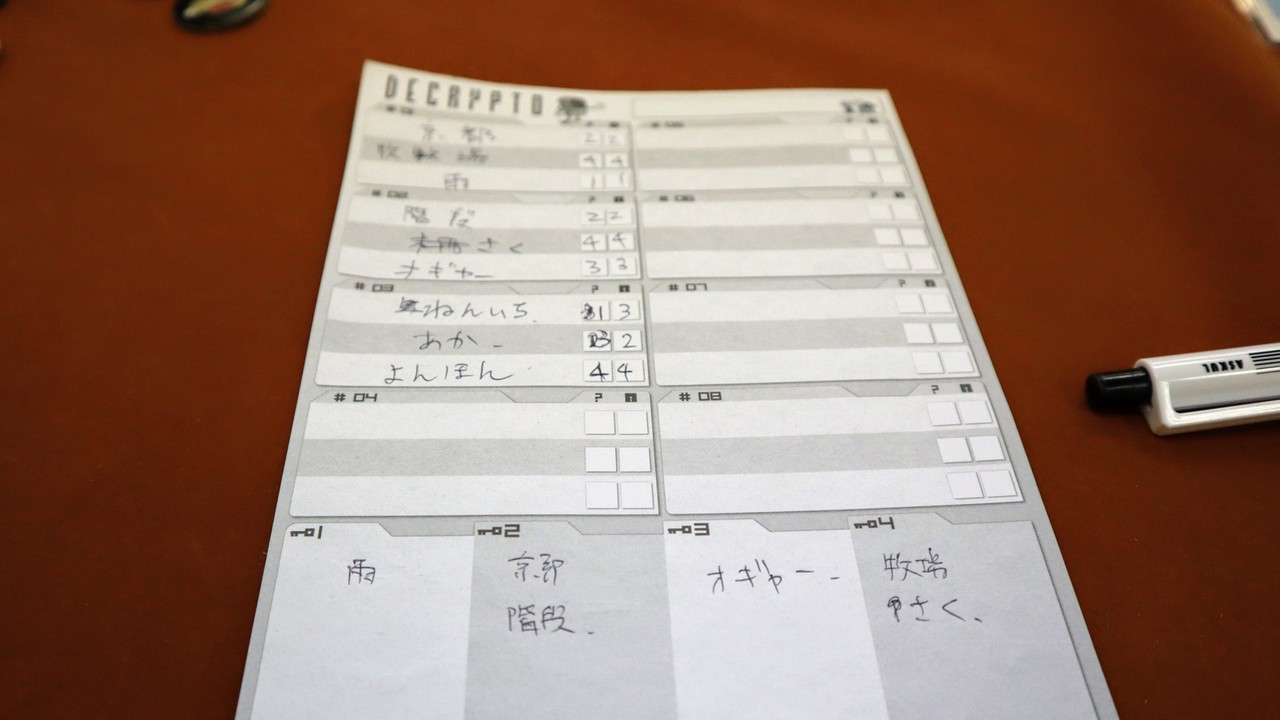 DECRYPTO
京都 2 2
牧場 4 4
雨 1 1
# 02 ? !
階段 2 2
さく 4 4
オギャー 3 3
# 03 ? # 07 ?
ねんいち. 1 3
あか- 2
よんほん 4 4
# 04 ? # 08 ?
1 2 3 4
雨 京都 オギャー- 牧場
階段. さく、
ASKUL